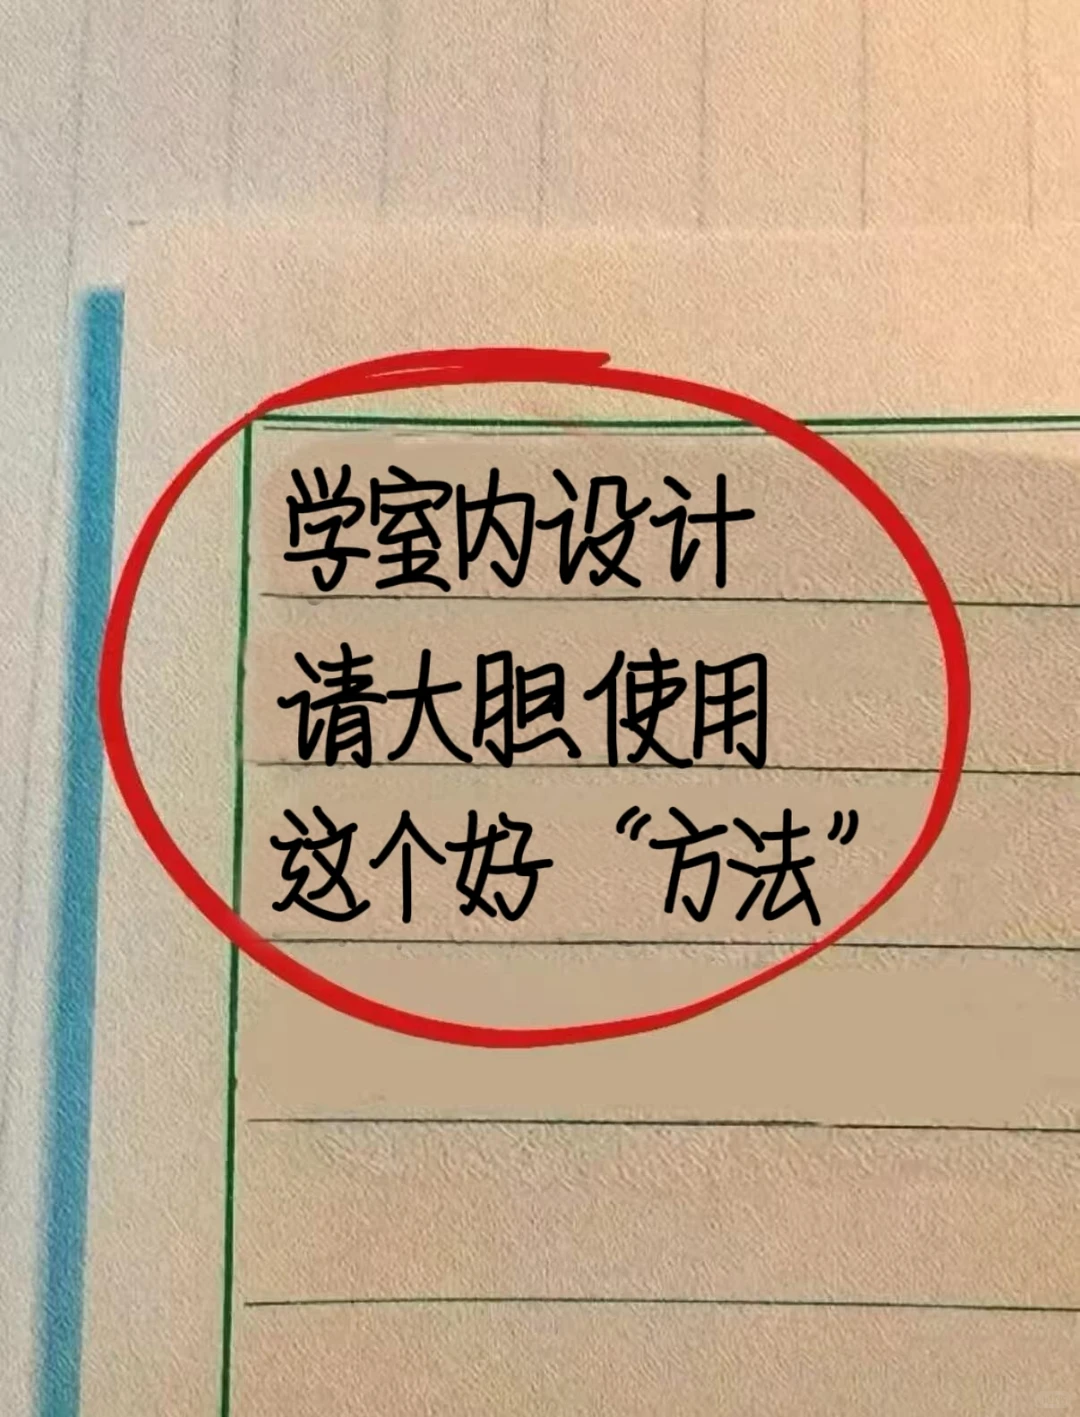 学室内设计
请大胆使用
这个好“方法”